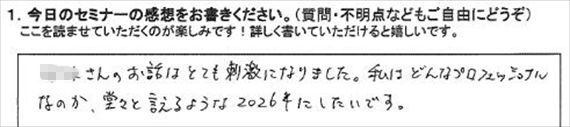 1. 今日のセミナーの感想をお書きください。(質問・不明点などもご自由にどうぞ)
ここを読ませていただくのが楽しみです!詳しく書いていただけると嬉しいです。
さんのお話はとても刺激になりました。私はどんなプロフェッショナル
なのか、堂々と言えるような2026年にしたいです。